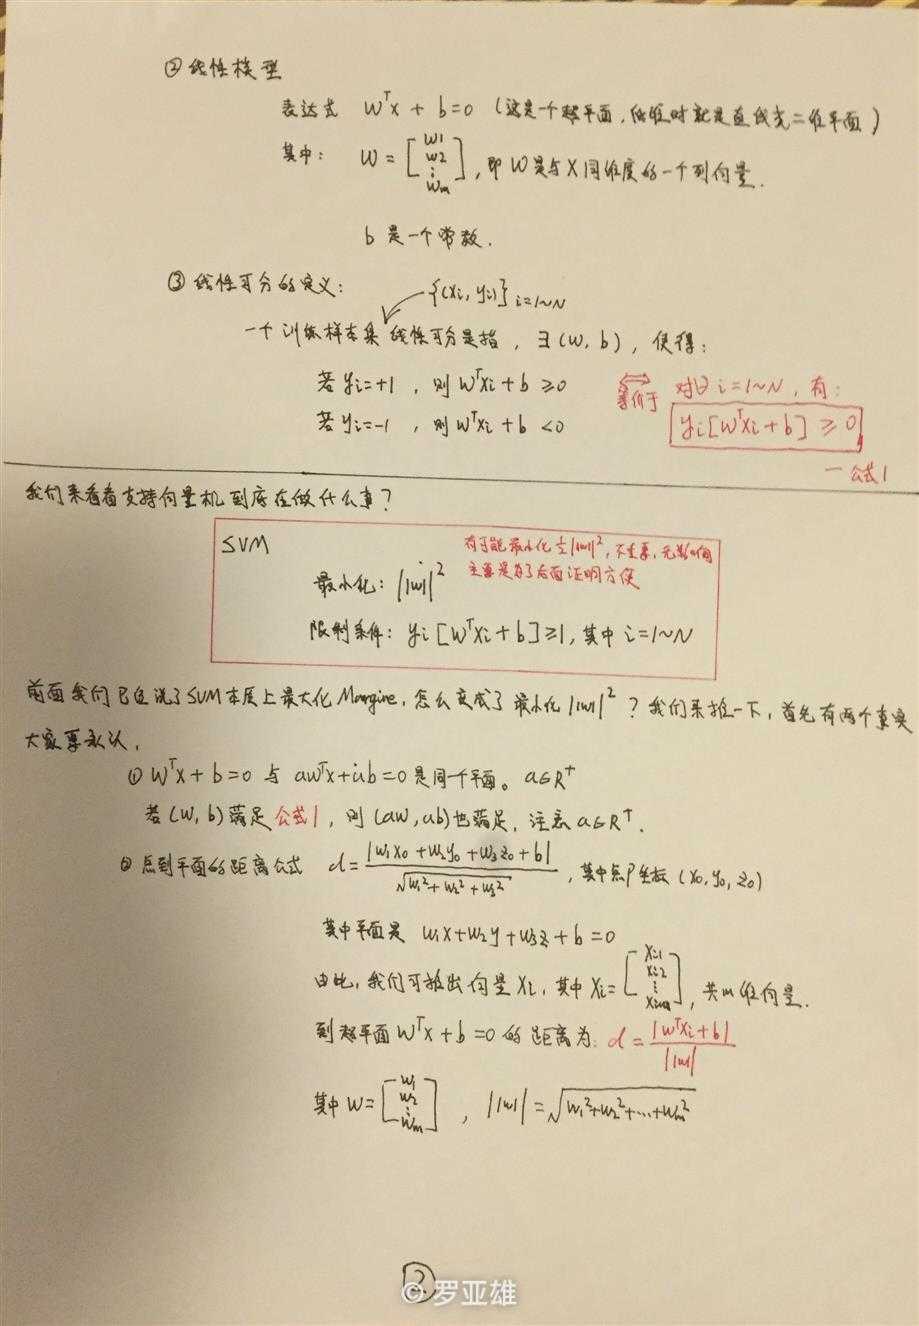 ② 线性模型
表达式 WᵀX + b = 0 (这是一个超平面,低维时就是直线或二维平面)
其中: W = [w1 w2 ⋮ wm], 即W是与X同维度的一个列向量.
b 是一个常数.
③ 线性可分的定义: {(Xi, yi)} i=1~N
一个训练样本集 线性可分是指, ∃(W, b), 使得:
若 yi=+1, 则 WᵀXi + b ≥ 0 等价于 对∀ i=1~N, 有:
若 yi=-1, 则 WᵀXi + b < 0 yi[WᵀXi + b] ≥ 0
— 公式1
我们来看看支持向量机到底在做什么事?
SVM 有可能最小化 ½||w||², 不重要,
主要是为了后面证明方便
最小化: ||w||²
限制条件: yi[WᵀXi + b] ≥ 1, 其中 i=1~N
前面我们已经说了SVM本质上最大化Margine, 怎么变成了最小化||w||²? 我们来推一下, 首先有两个事实
大家要承认,
① WᵀX + b = 0 与 aWᵀX + ab = 0 是同一个平面。a∈R⁺
若(W, b)满足公式1, 则(aW, ab)也满足, 注意 a∈R⁺.
② 点到平面的距离公式 d = |w1x0 + w2y0 + w3z0 + b| / √(w1² + w2² + w3²), 其中点P坐标 (x0, y0, z0)
其中平面是 w1x + w2y + w3z + b = 0
由此, 我们可推出向量Xi, 其中 Xi = [Xi1 Xi2 ⋮ Xim], 共m维向量.
到超平面 WᵀX + b = 0 的距离为: d = |WᵀXi + b| / ||w||
其中 W = [w1 w2 ⋮ wm], ||w|| = √(w1² + w2² + ... + wm²)
②
© 罗亚雄